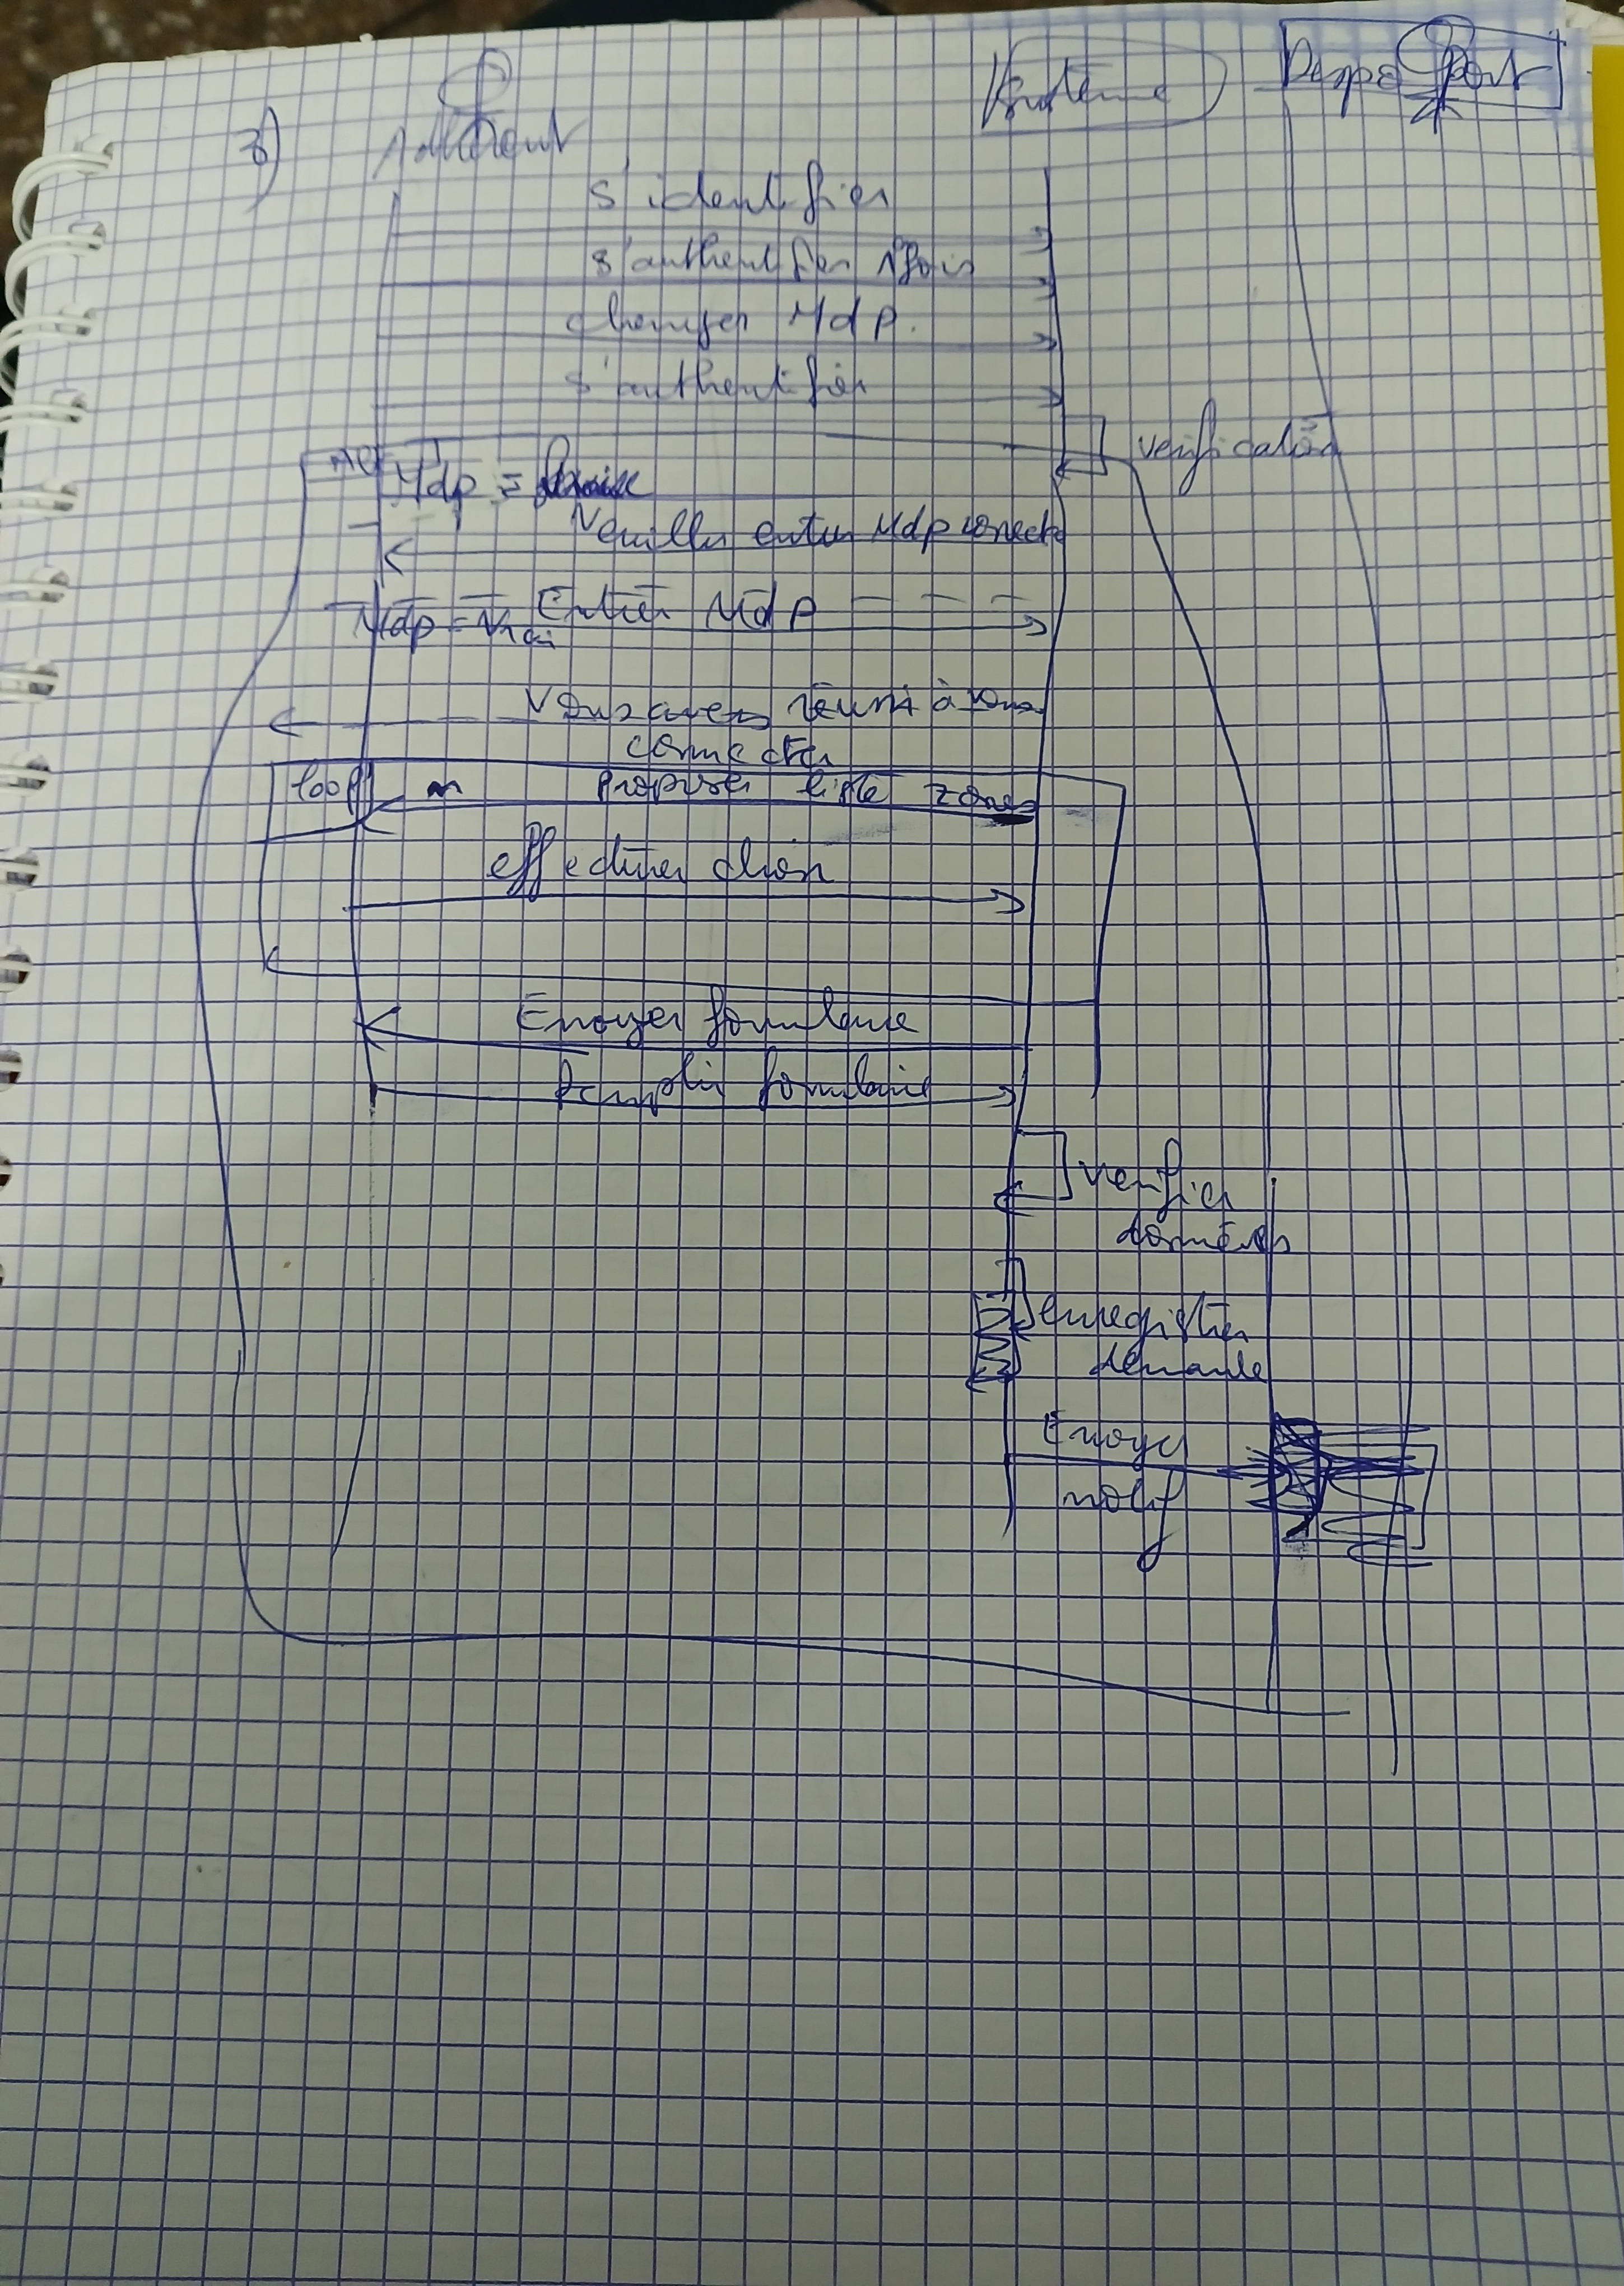 3)
Adhérent
Système
Resp
s'identifier
s'authentifier 1 fois
changer Mdp.
s'authentifier
verification
Mdp =
Veuillez entrer Mdp correct
Entrer Mdp
Mdp = Vrai
Vous avez réussi à vous
connecter
loop
proposer liste zones
effectuer choix
Envoyer formulaire
Remplir formulaire
verifier
données
enregistrer
demande
Envoyer
notif